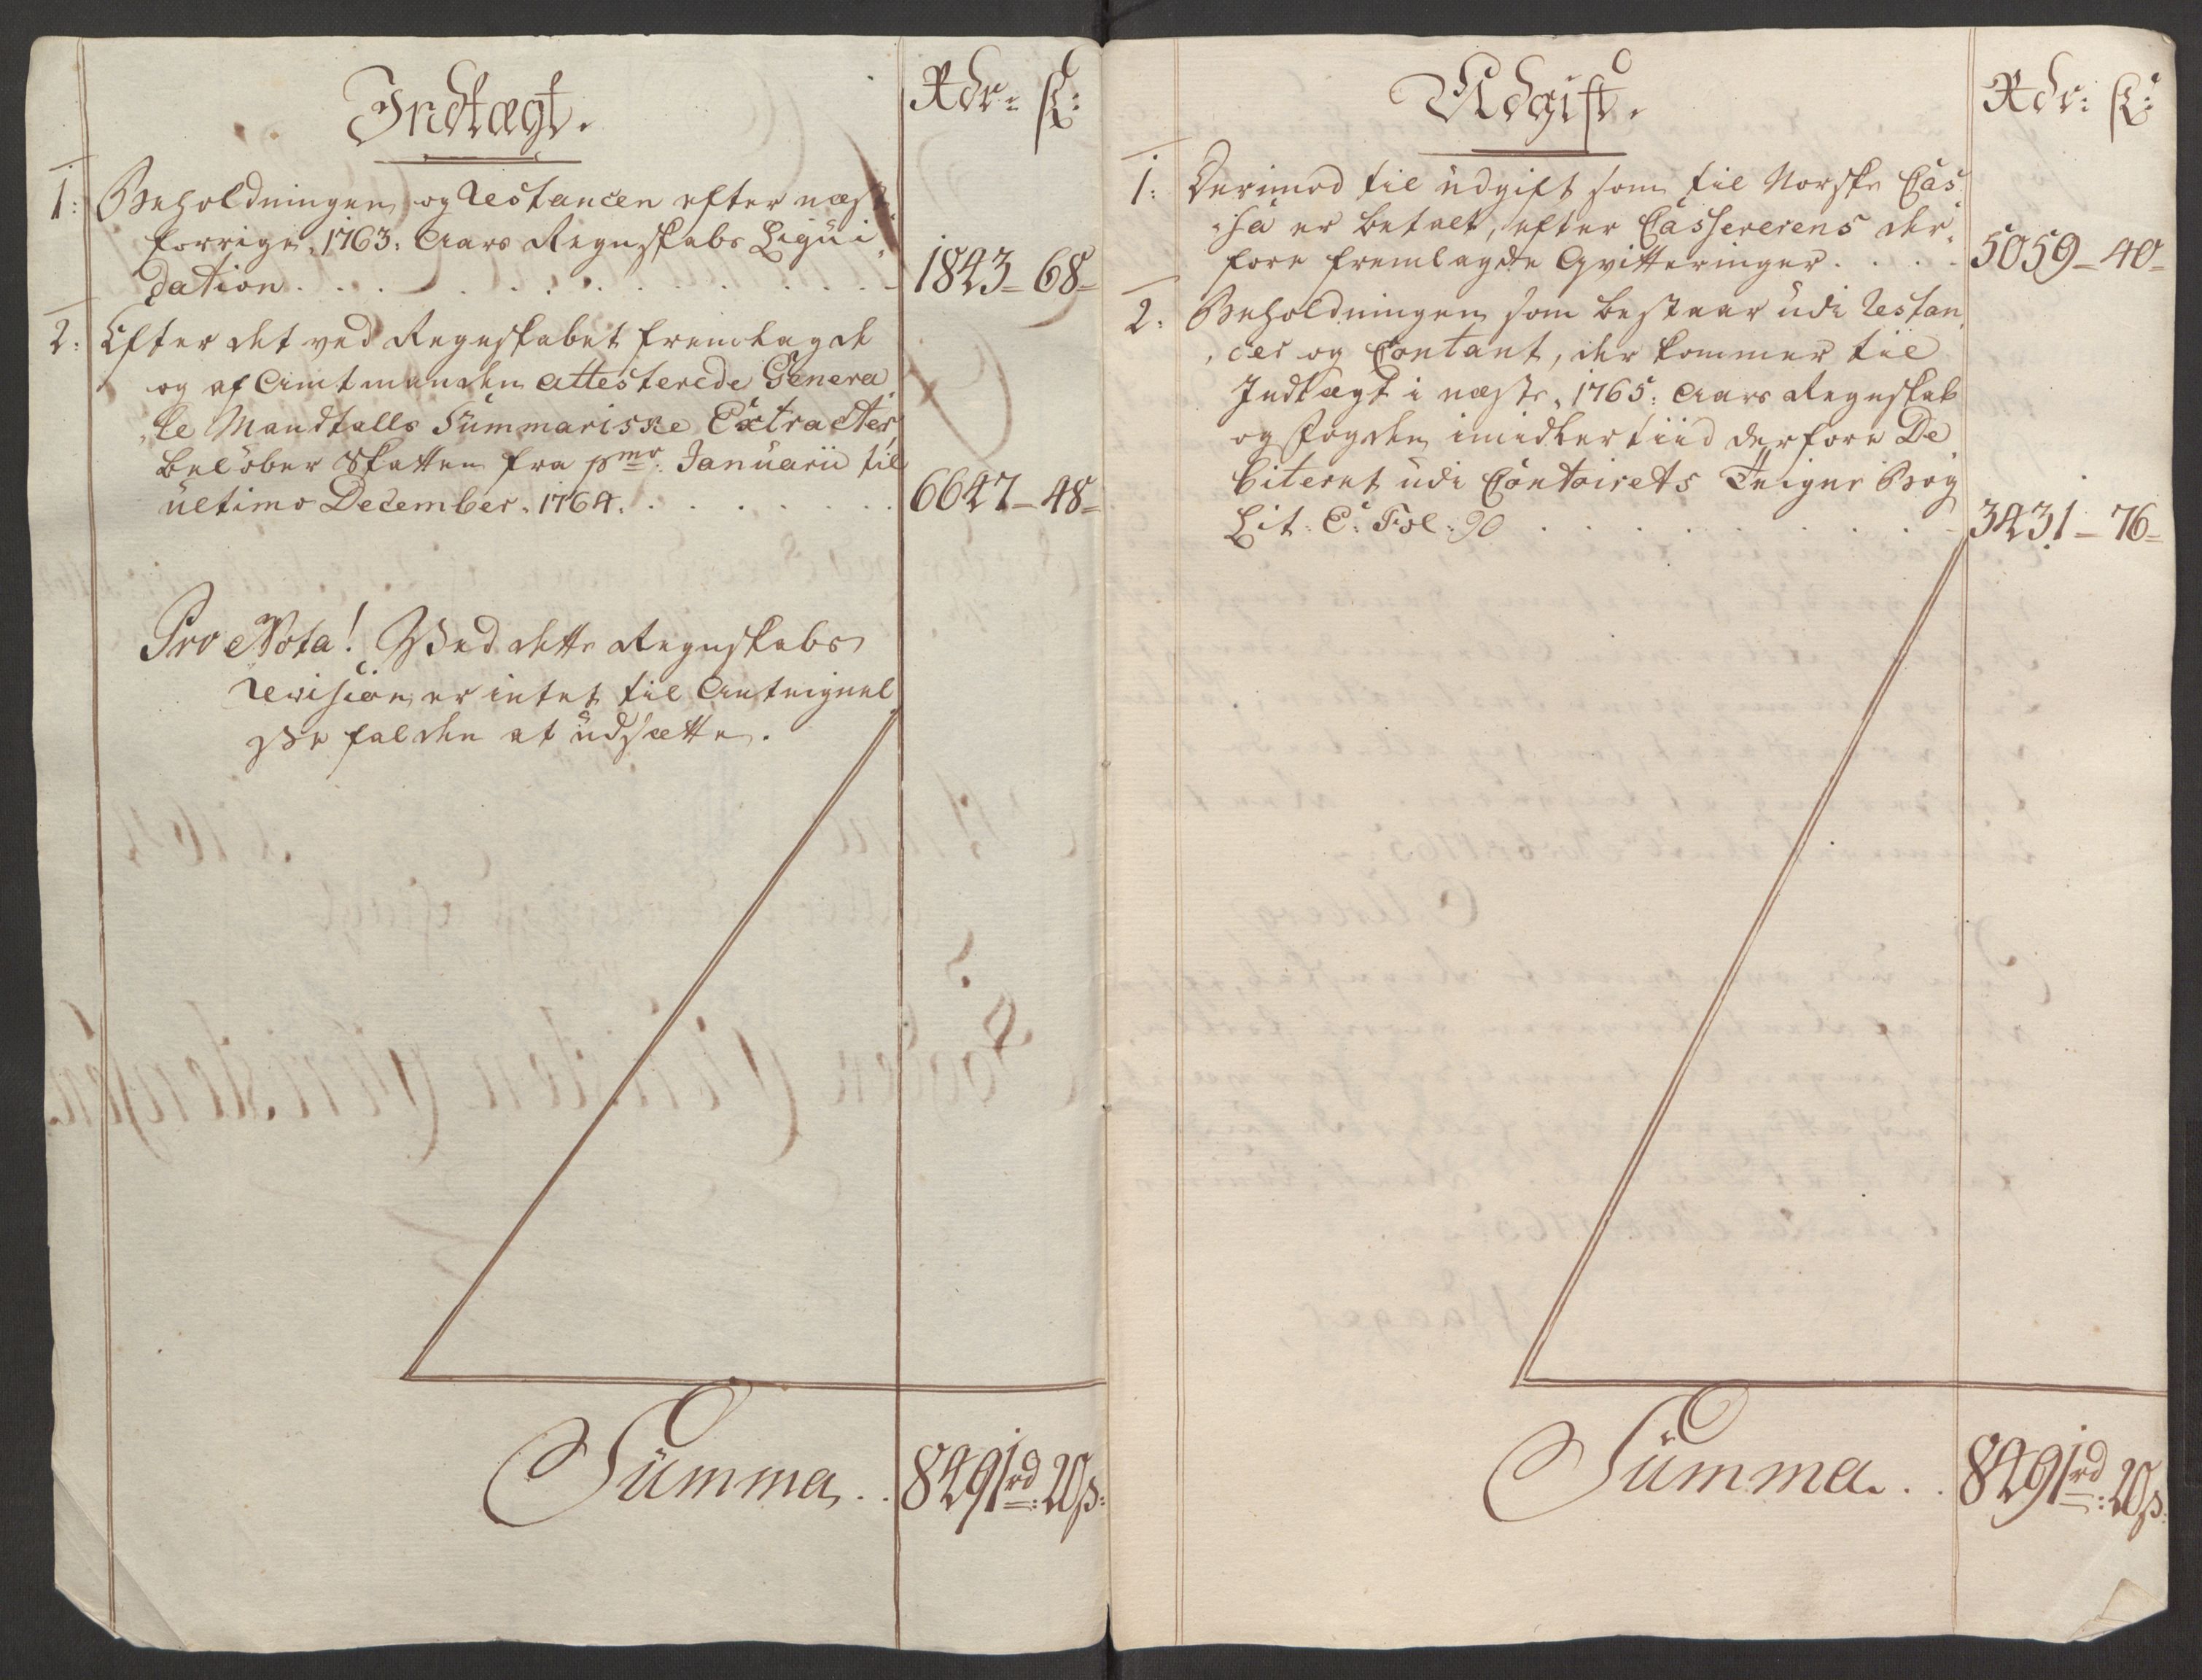 Indtægt.
Rdr: ſk:
1: Beholdningen og Restancen efter næst
forrige, 1763: Aars Regnskabs Liqui
dation . . . . . . . . . . 1843 – 68 =
2: Efter det ved Regnskabet fremlagde
og af Amtmanden attesterede Genera
le Mandtalls Summariske Extracter,
beløber Skatten fra pmo: Januarii til
ultimo December. 1764. . . . . . . 6647 – 48 =
Pro Nota! Wed dette Regnskabs
Revision er intet til Anteignel
sse falden at udsætte.
Summa . . 8491rd: 20ß:
Udgift.
Rdr: ſk:
1: Derimod til udgift som til Norske Cas
sa er betalt, efter Cassererens der
fore fremlagde Qvitteringer . . . . 5059 – 40 =
2: Beholdningen som bestaar udi Restan
cer og Contant, der kommer til
Indtægt i næste, 1765: Aars Regnskab
og Fogden imidlertiid derfore De
biteret udi Contoirets Teigne Bog
Lit: C: Fol: 90 . . . . . . . . 3431 – 76 =
Summa . . 8491rd: 20ß: